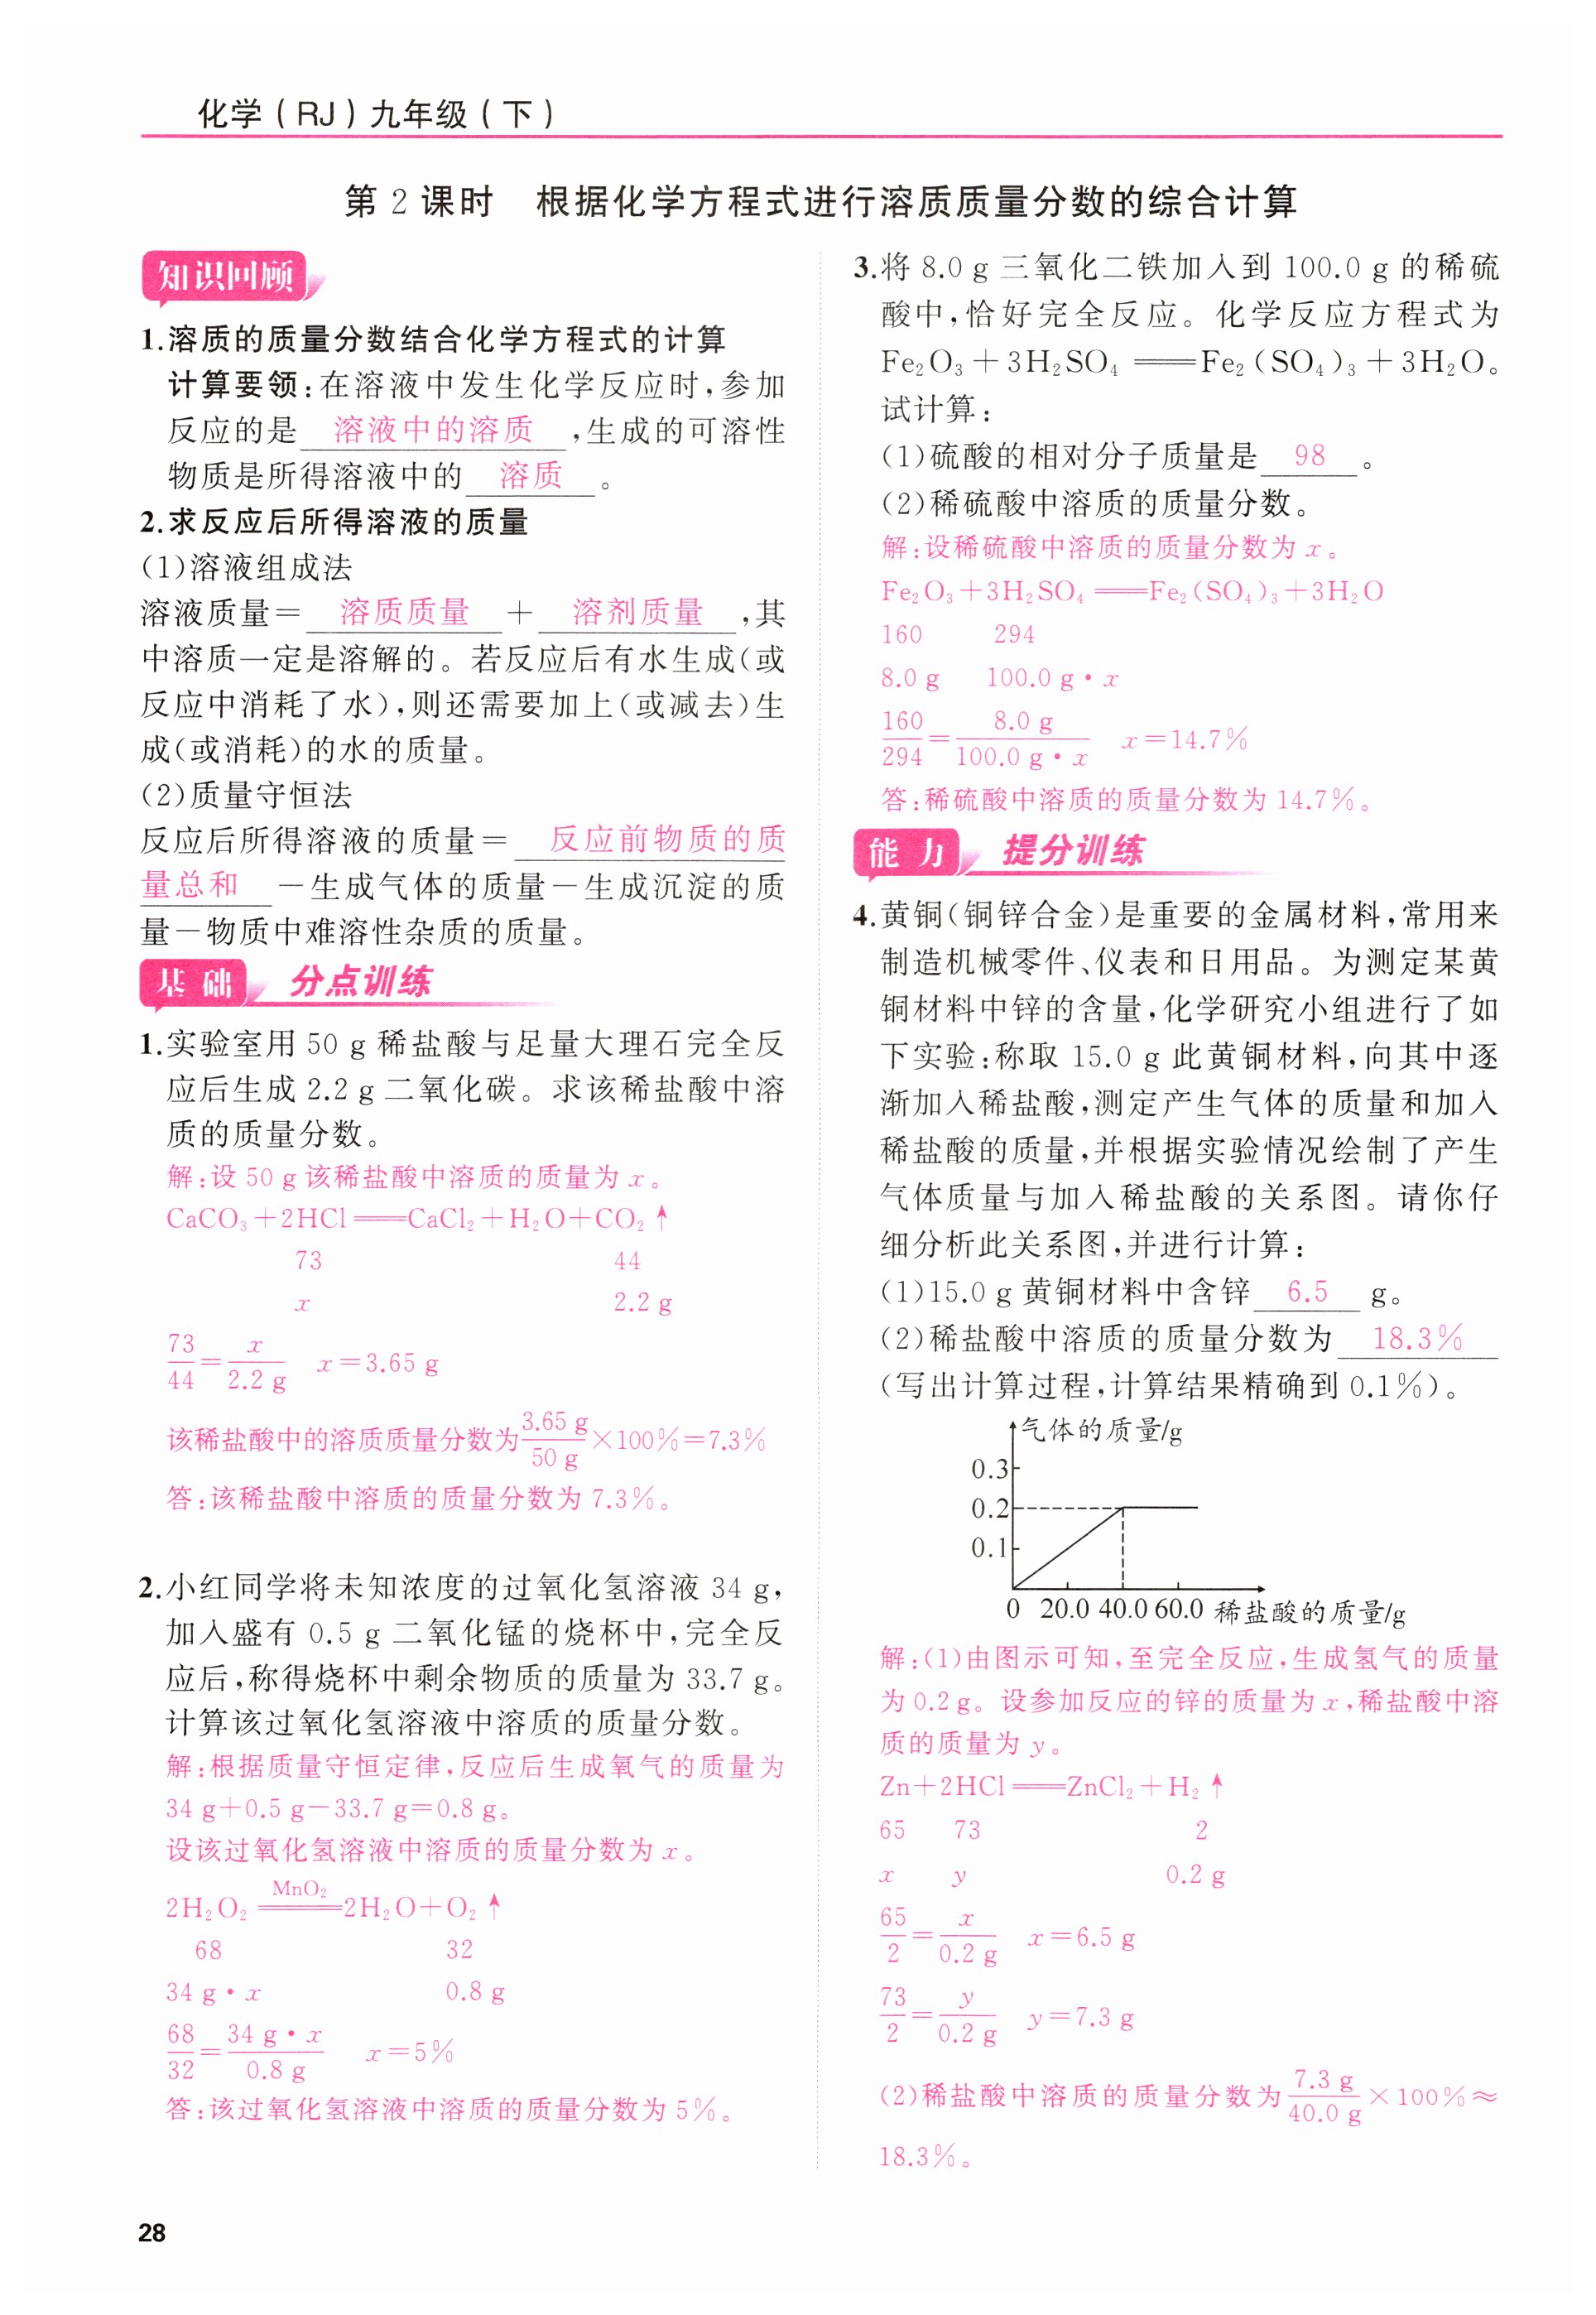 化学(RJ)九年级(下)
第 2 课时　根据化学方程式进行溶质质量分数的综合计算
知识回顾
1.溶质的质量分数结合化学方程式的计算
计算要领:在溶液中发生化学反应时,参加
反应的是 溶液中的溶质 ,生成的可溶性
物质是所得溶液中的 溶质 。
2.求反应后所得溶液的质量
(1)溶液组成法
溶液质量= 溶质质量 + 溶剂质量 ,其
中溶质一定是溶解的。若反应后有水生成(或
反应中消耗了水),则还需要加上(或减去)生
成(或消耗)的水的质量。
(2)质量守恒法
反应后所得溶液的质量= 反应前物质的质
量总和 -生成气体的质量-生成沉淀的质
量-物质中难溶性杂质的质量。
基础 分点训练
1.实验室用 50 g 稀盐酸与足量大理石完全反
应后生成 2.2 g 二氧化碳。求该稀盐酸中溶
质的质量分数。
解:设 50 g 该稀盐酸中溶质的质量为 x。
CaCO₃+2HCl══CaCl₂+H₂O+CO₂↑
73 44
x 2.2 g
73/44=x/2.2 g x=3.65 g
该稀盐酸中的溶质质量分数为3.65 g/50 g×100%=7.3%
答:该稀盐酸中溶质的质量分数为 7.3%。
2.小红同学将未知浓度的过氧化氢溶液 34 g,
加入盛有 0.5 g 二氧化锰的烧杯中,完全反
应后,称得烧杯中剩余物质的质量为 33.7 g。
计算该过氧化氢溶液中溶质的质量分数。
解:根据质量守恒定律,反应后生成氧气的质量为
34 g+0.5 g-33.7 g=0.8 g。
设该过氧化氢溶液中溶质的质量分数为 x。
MnO₂
2H₂O₂══2H₂O+O₂↑
68 32
34 g·x 0.8 g
68/32=34 g·x/0.8 g x=5%
答:该过氧化氢溶液中溶质的质量分数为 5%。
3.将 8.0 g 三氧化二铁加入到 100.0 g 的稀硫
酸中,恰好完全反应。化学反应方程式为
Fe₂O₃+3H₂SO₄══Fe₂(SO₄)₃+3H₂O。
试计算:
(1)硫酸的相对分子质量是 98 。
(2)稀硫酸中溶质的质量分数。
解:设稀硫酸中溶质的质量分数为 x。
Fe₂O₃+3H₂SO₄══Fe₂(SO₄)₃+3H₂O
160 294
8.0 g 100.0 g·x
160/294=8.0 g/100.0 g·x x=14.7%
答:稀硫酸中溶质的质量分数为 14.7%。
能力 提分训练
4.黄铜(铜锌合金)是重要的金属材料,常用来
制造机械零件、仪表和日用品。为测定某黄
铜材料中锌的含量,化学研究小组进行了如
下实验:称取 15.0 g 此黄铜材料,向其中逐
渐加入稀盐酸,测定产生气体的质量和加入
稀盐酸的质量,并根据实验情况绘制了产生
气体质量与加入稀盐酸的关系图。请你仔
细分析此关系图,并进行计算:
(1)15.0 g 黄铜材料中含锌 6.5 g。
(2)稀盐酸中溶质的质量分数为 18.3%
(写出计算过程,计算结果精确到 0.1%)。
气体的质量/g
0.3
0.2
0.1
0 20.0 40.0 60.0 稀盐酸的质量/g
解:(1)由图示可知,至完全反应,生成氢气的质量
为 0.2 g。设参加反应的锌的质量为 x,稀盐酸中溶
质的质量为 y。
Zn+2HCl══ZnCl₂+H₂↑
65 73 2
x y 0.2 g
65/2=x/0.2 g x=6.5 g
73/2=y/0.2 g y=7.3 g
(2)稀盐酸中溶质的质量分数为7.3 g/40.0 g×100%≈
18.3%。
28